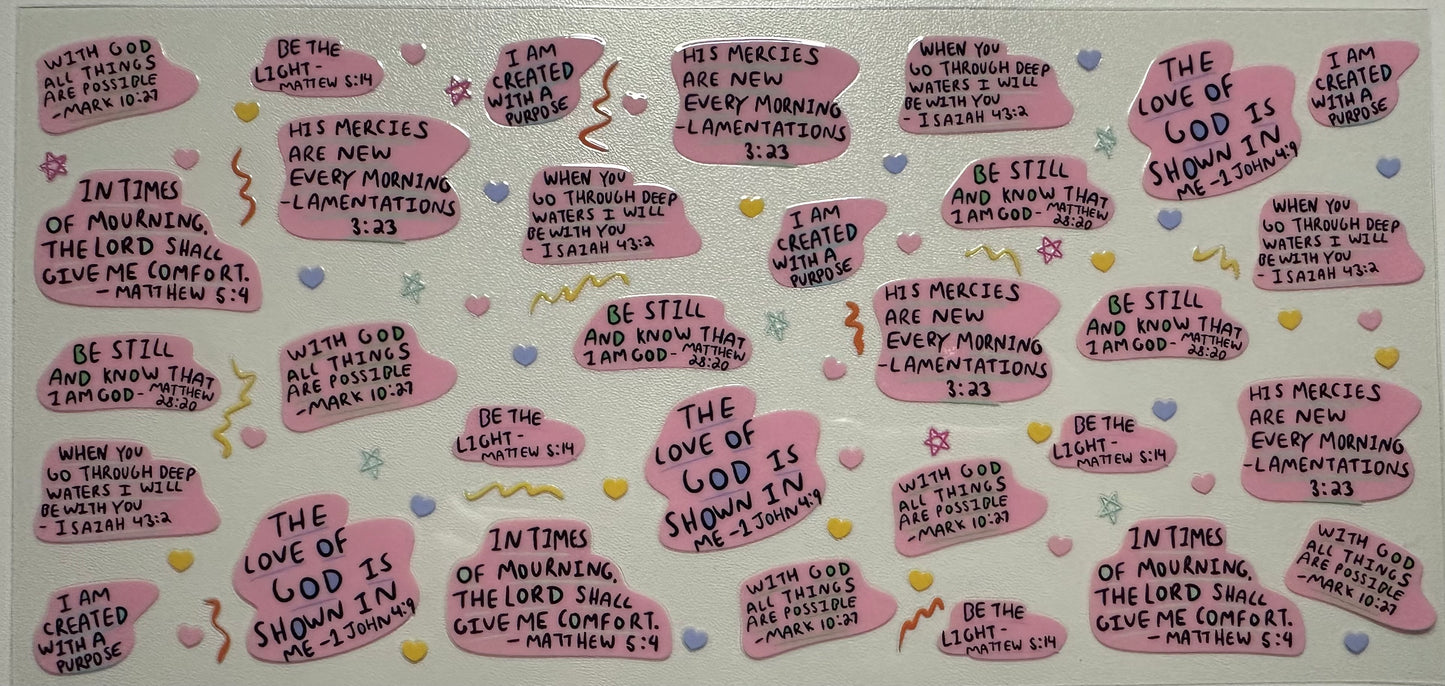 WITH GOD
ALL THINGS
ARE POSSIBLE
-MARK 10:27
BE THE
LIGHT-
MATTEW 5:14
I AM
CREATED
WITH A
PURPOSE
HIS MERCIES
ARE NEW
EVERY MORNING
-LAMENTATIONS
3:23
WHEN YOU
GO THROUGH DEEP
WATERS I WILL
BE WITH YOU
- ISAIAH 43:2
THE
LOVE OF
GOD IS
SHOWN IN
ME -1 JOHN 4:9
I AM
CREATED
WITH A
PURPOSE
HIS MERCIES
ARE NEW
EVERY MORNING
-LAMENTATIONS
3:23
IN TIMES
OF MOURNING,
THE LORD SHALL
GIVE ME COMFORT.
-MATTHEW 5:4
WHEN YOU
GO THROUGH DEEP
WATERS I WILL
BE WITH YOU
- ISAIAH 43:2
I AM
CREATED
WITH A
PURPOSE
BE STILL
AND KNOW THAT
I AM GOD- MATTHEW
28:20
WHEN YOU
GO THROUGH DEEP
WATERS I WILL
BE WITH YOU
- ISAIAH 43:2
BE STILL
AND KNOW THAT
I AM GOD- MATTHEW
28:20
WITH GOD
ALL THINGS
ARE POSSIBLE
-MARK 10:27
BE STILL
AND KNOW THAT
I AM GOD- MATTHEW
28:20
HIS MERCIES
ARE NEW
EVERY MORNING
-LAMENTATIONS
3:23
BE STILL
AND KNOW THAT
I AM GOD- MATTHEW
28:20
WHEN YOU
GO THROUGH DEEP
WATERS I WILL
BE WITH YOU
- ISAIAH 43:2
BE THE
LIGHT-
MATTEW 5:14
THE
LOVE OF
GOD IS
SHOWN IN
ME -1 JOHN 4:9
WITH GOD
ALL THINGS
ARE POSSIBLE
-MARK 10:27
BE THE
LIGHT-
MATTEW 5:14
HIS MERCIES
ARE NEW
EVERY MORNING
-LAMENTATIONS
3:23
I AM
CREATED
WITH A
PURPOSE
THE
LOVE OF
GOD IS
SHOWN IN
ME -1 JOHN 4:9
IN TIMES
OF MOURNING,
THE LORD SHALL
GIVE ME COMFORT.
-MATTHEW 5:4
WITH GOD
ALL THINGS
ARE POSSIBLE
-MARK 10:27
BE THE
LIGHT-
MATTEW 5:14
IN TIMES
OF MOURNING,
THE LORD SHALL
GIVE ME COMFORT.
-MATTHEW 5:4
WITH GOD
ALL THINGS
ARE POSSIBLE
-MARK 10:27